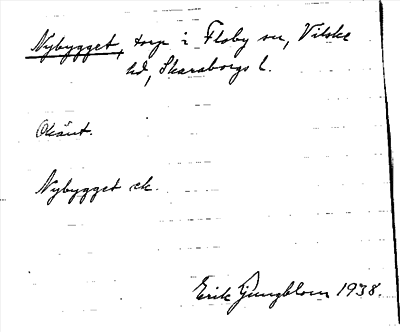 Nybygget, torp i Floby sn, Vilske
hd, Skaraborgs l.
Okänt.
Nybygget ek.
Erik Ljungblom 1938.